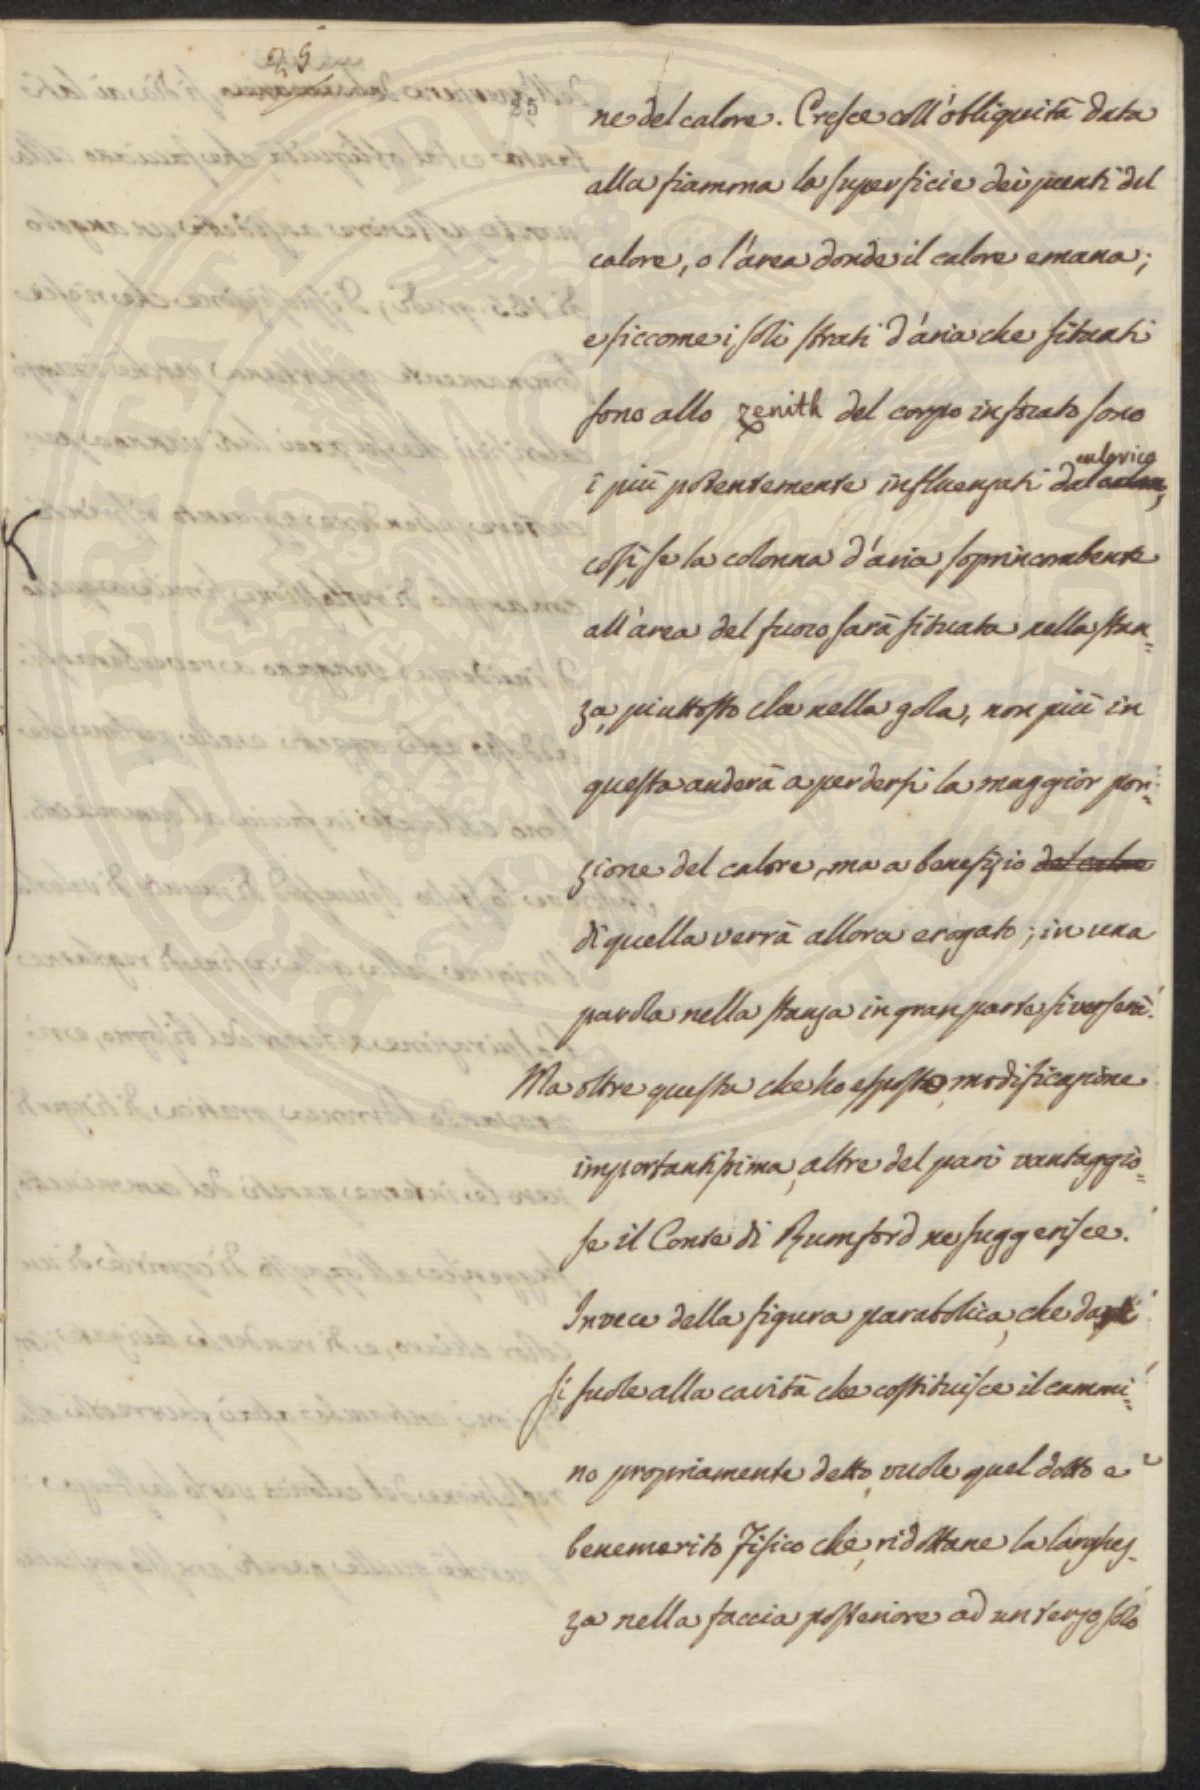 25
25
ne del calore. Cresce coll'obliquità data
alla fiamma la superficie dei punti del
calore, o l'area donde il calore emana;
e siccome i soli strati d'aria che situati
sono allo zenith del corpo infocato sono
calorico
i più potentemente influenzati dal calore,
così, se la colonna d'aria soprincombente
all'area del fuoco sarà situata nella stan=
za, piuttosto che nella gola, non più in
questa anderà a perdersi la maggior por=
zione del calore, ma a benefizio del calore
di quella verrà allora erogato; in una
parola nella stanza in gran parte si verserà.
Ma oltre questa che ho esposto, modificazione
importantissima, altre del pari vantaggio=
se il Conte di Rumford ne suggerisce.
Invece della figura parabolica, che
si suole alla cavità che costituisce il cammi=
no propriamente detto, vuole quel dotto e
benemerito Fisico che, ridottane la larghez-
za nella faccia posteriore ad un terzo solo